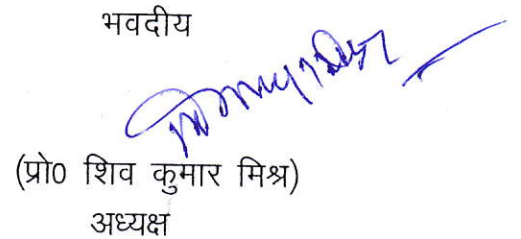 भवदीय
(प्रो0 शिव कुमार मिश्र)
अध्यक्ष